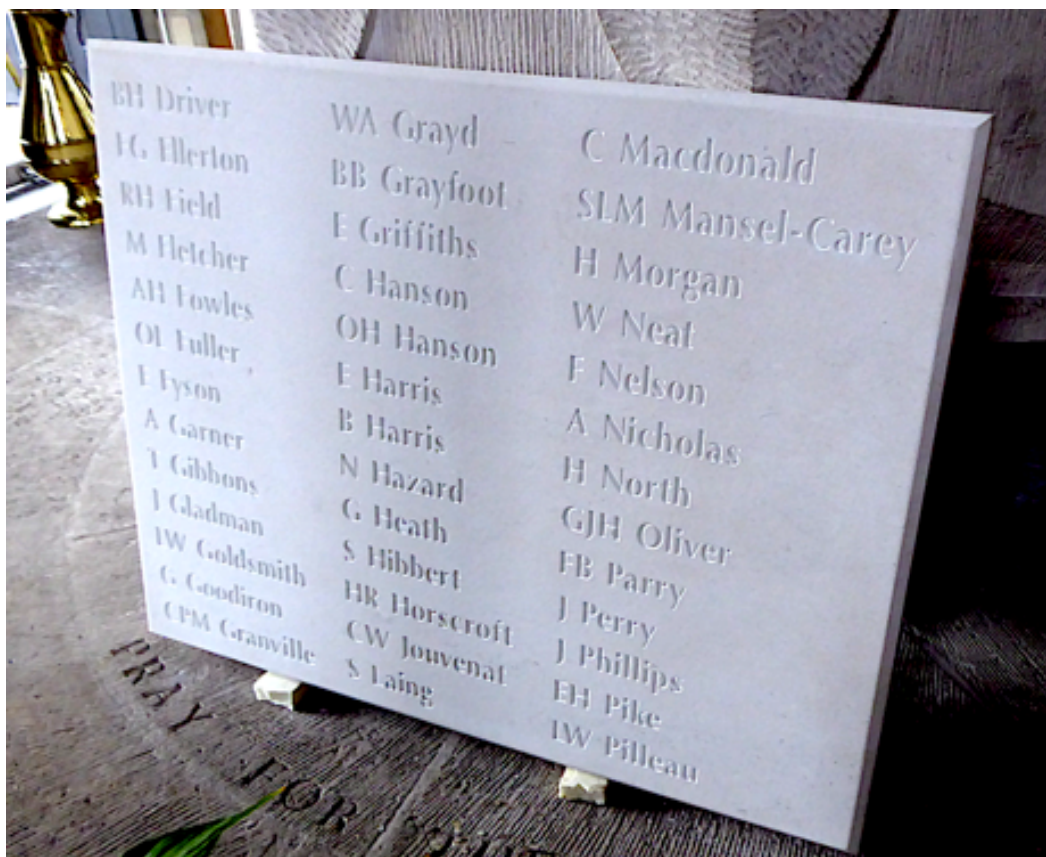 BH Driver
FG Ellerton
RH Field
M Fletcher
AH Fowles
OL Fuller
E Fyson
A Garner
T Gibbons
J Gladman
IW Goldsmith
G Goodiron
CPM Granville
WA Grayd
BB Grayfoot
E Griffiths
C Hanson
OH Hanson
E Harris
B Harris
N Hazard
G Heath
S Hibbert
HR Horscroft
CW Jouvenat
S Laing
C Macdonald
SLM Mansel-Carey
H Morgan
W Neat
F Nelson
A Nicholas
H North
GJH Oliver
FB Parry
J Perry
J Phillips
EH Pike
LW Pilleau
PRAY FOR